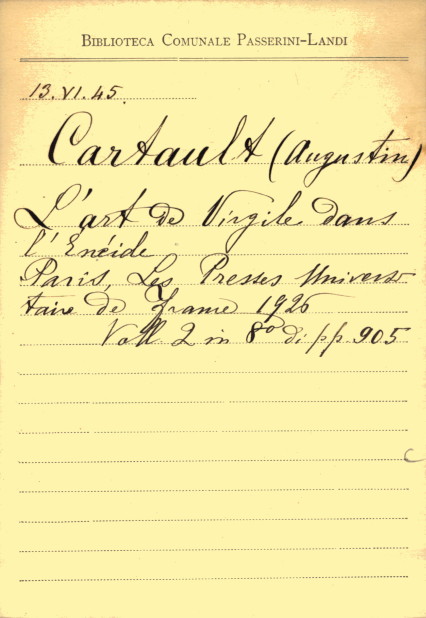 BIBLIOTECA COMUNALE PASSERINI-LANDI
13.VI.45.
Cartault (Augustin)
L'art de Virgile dans
l'Enéide
Paris, Les Presses Universi
taire de France 1926
Voll 2 in 8° di pp. 905